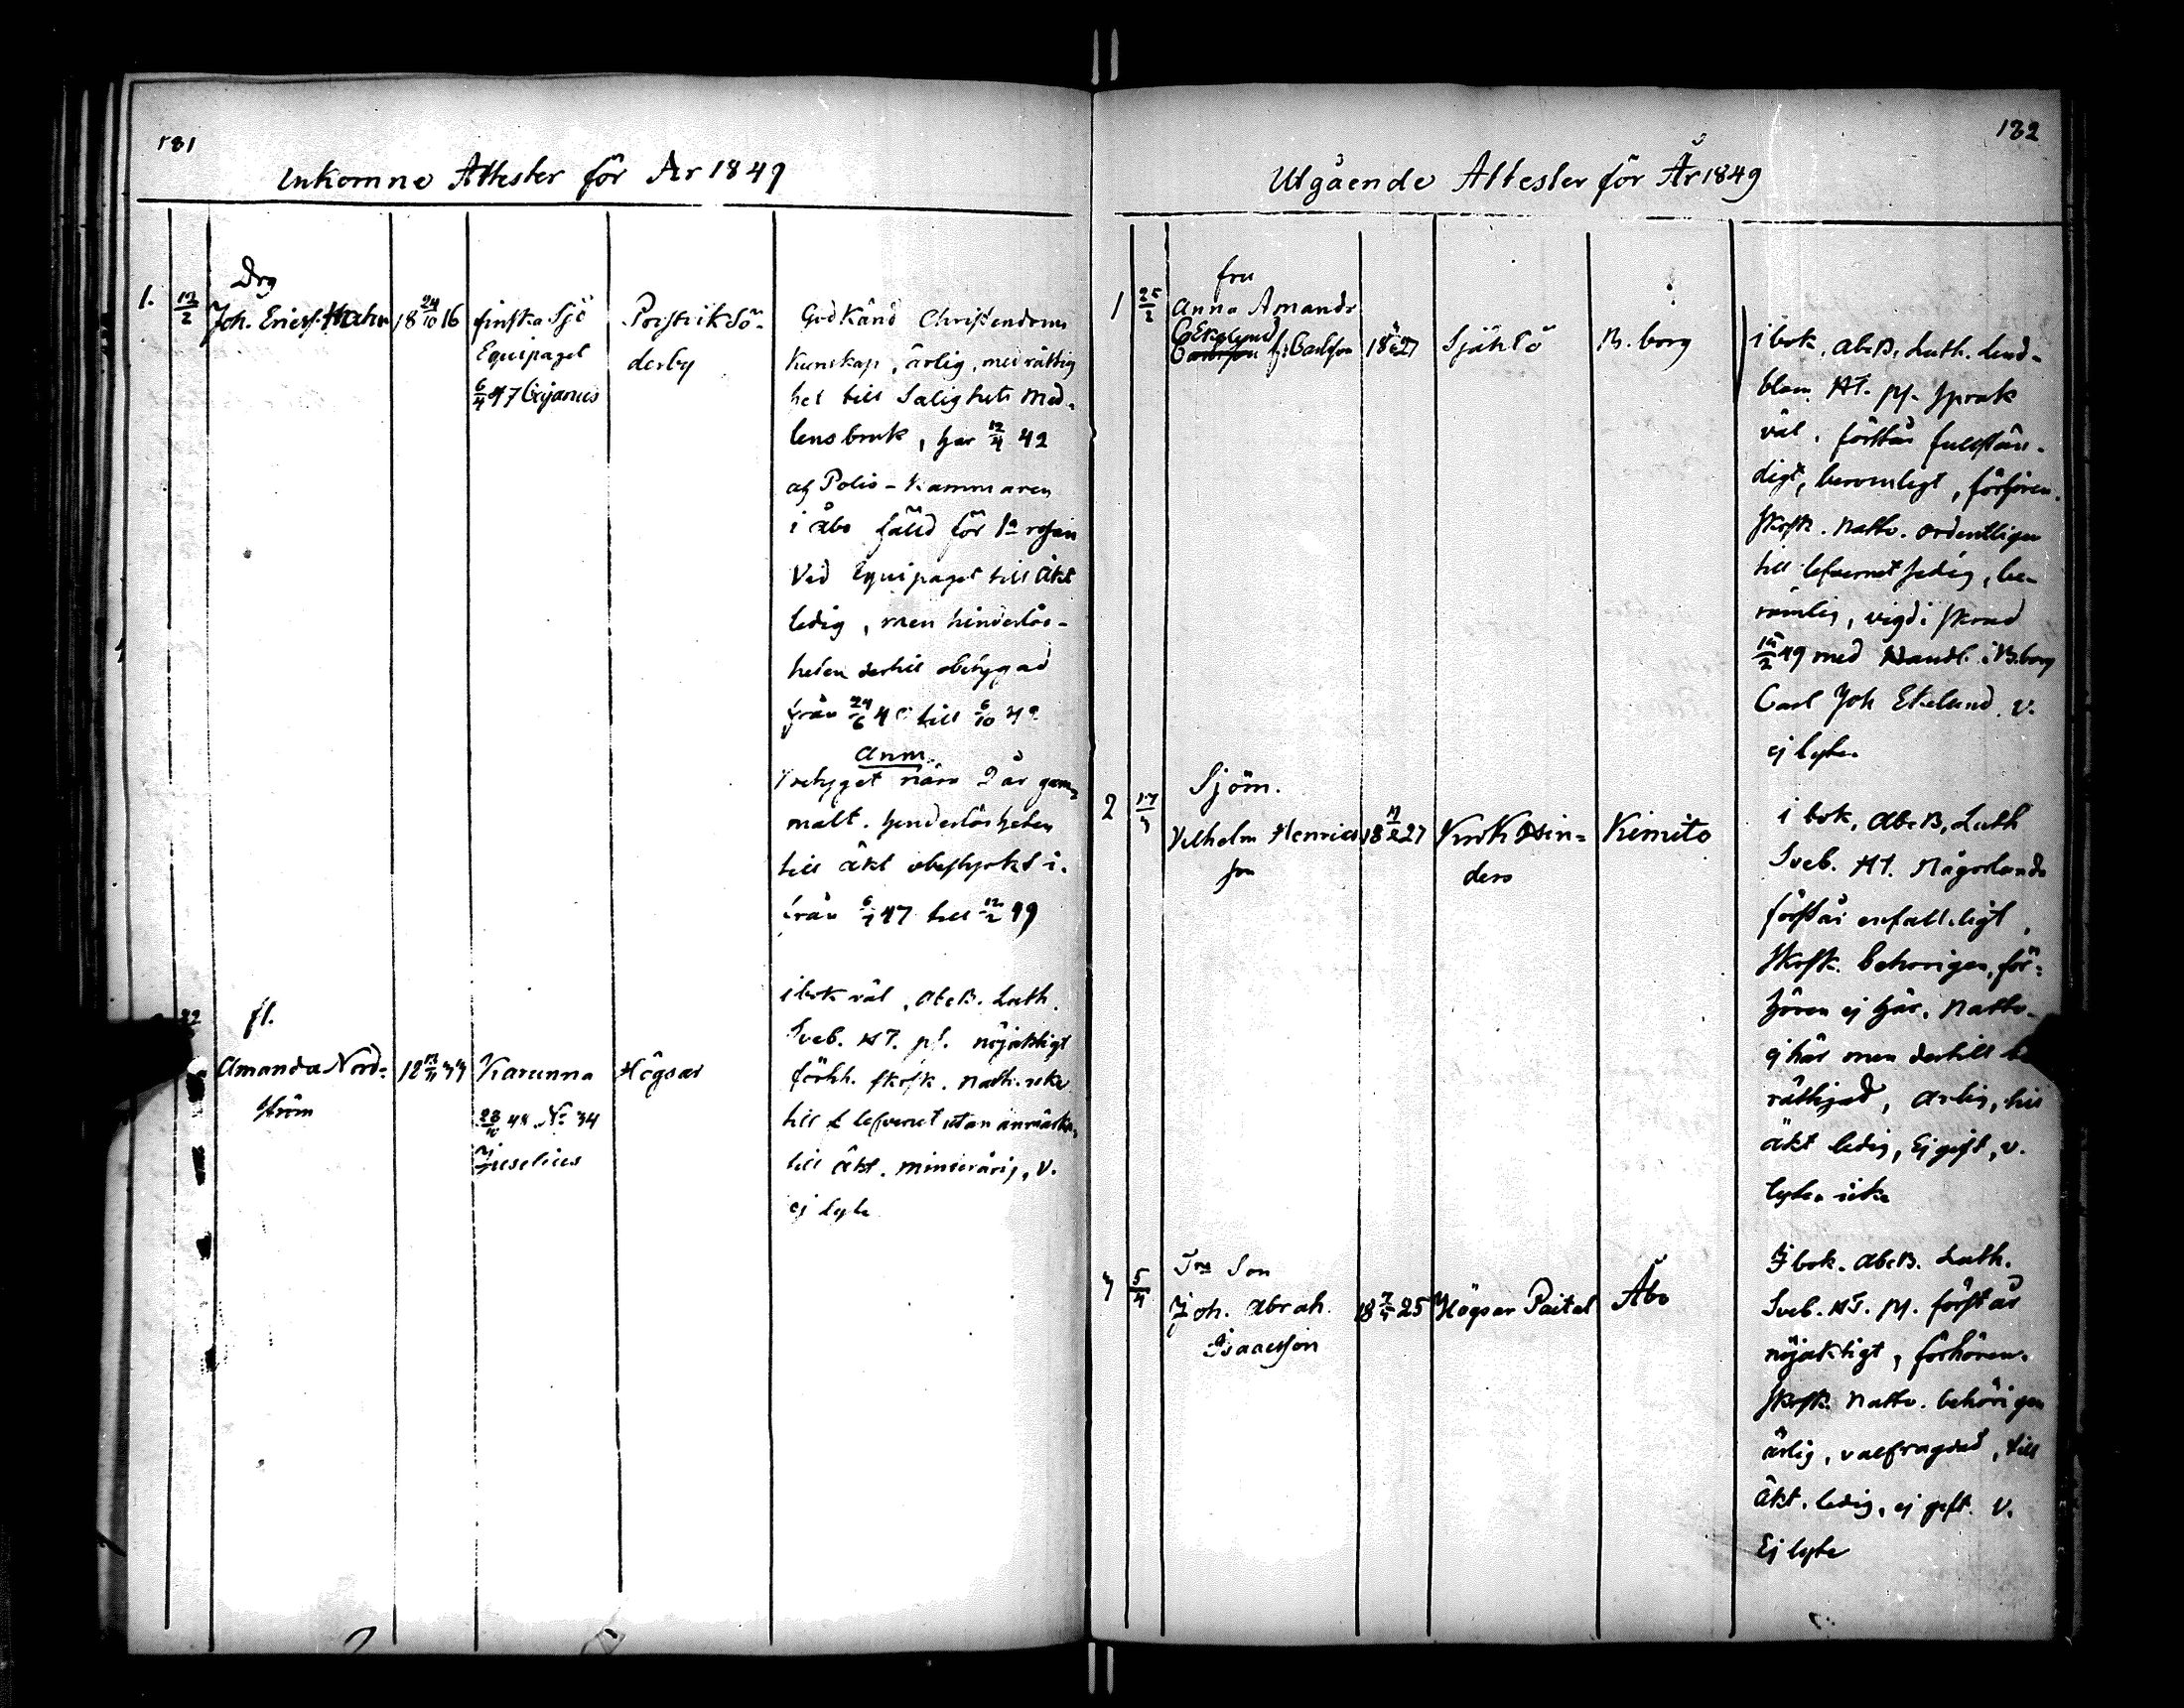 181
Inkomne Attester för År 1849
1.
12/2
Drg
Joh. Ericss. Hahn
18 24/10 16
finska Sjö
Equipaget
6/4 47 Cajanus
Porstrik Sö-
derby
God Känd Christendoms
Kunskap, ärlig, med rättig
het till Salighets Med-
lens bruk, har 12/4 42
af Polis-Kammaren
i Åbo fälld för 1a resan
Ved Equipaget till äkt
ledig, men hinderlös-
heten dertill obetygad
från 24/6 till 6/10
Anm.
betyget nära 2 år gam-
malt. hinderlösheten
till äkt obestyrkt i.
från 6/4 47 till 12/2 49
fl.
Amanda Nord-
ström
Karunna
No 34
Högsar
i bok väl, AbcB. Luth.
Sveb. HT. ps. nöjaktigt
förhh. skrsk. nattv. icke
till lefvernet utan anmärkn,
till äkt. minderårig, v.
ej lyte
182
Utgående Attester för År 1849
1
25/2
fru
Anna Amanda
Ekelund
Carlsson f: Carlsson
Själsö
B. borg
i bok, AbcB, Luth. Lind-
blom HT. ps. Sprak
väl, förstår fullstän-
digt, berömligt, förhören.
skrsk. Nattv. ordentligen
till lefvernet sedig, be-
römlig, vigd i skrud
49 med Handl. i B.borg
Carl Joh Ekelund. v.
ej lyte.
2
17/3
Sjöm.
Vilhelm Henrics
son
Kimito
i bok, AbcB, Luth
Sveb. HT. Någorlunda
förstår enfaldigt,
skrsk. behörigen, för-
hören ej här, Nattv.
ej här men dertill be
rättigad, ärlig, till
äkt ledig, Ej gift, v.
lyte icke
3
5/4
Trp Son
Joh. Abrah.
Isaacsson
25
Högsar Paital
Åbo
I bok. AbcB. Luth.
Sveb. HT. ps. förstår
nöjaktigt, förhören.
skrsk. Nattv. behörigen
ärlig, välfrägdad, till
äkt. ledig, ej gift. v.
Ej lyte